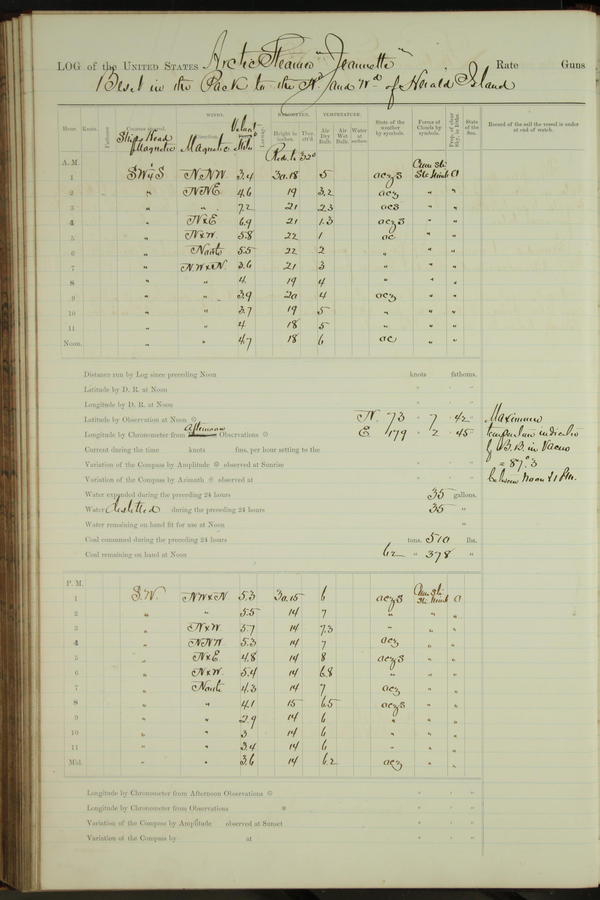 LOG of the UNITED STATES Arctic Steamer "Jeannette" Rate Guns
Beset in the Pack to the Nd and Wd of Herald Island
WINDS. BAROMETER. TEMPERATURE.
Hour. Knots. Fathoms. Courses steered. Ship's Head Magnetic Direction. Magnetic Velocity Miles Leeway. Height in inches. Ther. att'd. Red. to 32° Air Dry Bulb. Air Wet Bulb. Water at surface. State of the weather by symbols. Forms of Clouds by symbols. Prop. of clear Sky, in 10ths. State of the Sea. Record of the sail the vessel is under at end of watch.
A. M. Cum Sti
1 SW¼S NNW 3.4 30.18 5 oczs Sti Nimb 0
2 " NNE 4.6 19 3.2 ocz " "
3 " " 7.2 21 2.3 ocs " "
4 " NxE 6.9 21 1.3 oczs " "
5 " NxW. 5.8 22 1 oc " "
6 " North 5.5 22 2 " " "
7 " N.WxN. 3.6 21 3 " " "
8 " " 4. 19 4 " " "
9 " " 3.9 20 4 ocz " "
10 " " 3.7 19 5 " " "
11 " " 4 18 5 " " "
Noon. " " 4.7 18 6 oc " "
Distance run by Log since preceding Noon knots fathoms.
Latitude by D. R. at Noon
Longitude by D. R. at Noon
Latitude by Observation at Noon N. 73 ° 7 ' 42 "
Longitude by Chronometer from afternoon Observations E 179 ° 2 ' 45 "
Current during the time knots fms. per hour setting to the
Variation of the Compass by Amplitude observed at Sunrise
Variation of the Compass by Azimuth observed at
Water expended during the preceding 24 hours 35 gallons.
Water distilled during the preceding 24 hours 35 "
Water remaining on hand fit for use at Noon "
Coal consumed during the preceding 24 hours tons. 510 lbs.
Coal remaining on hand at Noon 62 " 378 "
Maximum
temperature indicated
by B.B. in Vacuo
= 87°.3
between Noon & 1 P.m.
P. M. Cum Sti
1 S.W. NWxN 5.3 30.15 6 oczs Sti Nimb 0
2 " " 5.5 14 7 " " "
3 " NxW. 5.7 14 7.3 " " "
4 " NNW 5.3 14 7 ocz " "
5 " NxE. 4.8 14 8 oczs " "
6 " NxW. 5.4 14 6.8 " " "
7 " North 4.3 14 7 ocz " "
8 " " 4.1 15 6.5 oczs " "
9 " " 2.9 14 6 " " "
10 " " 3 14 6 " " "
11 " " 3.4 14 6 " " "
Mid. " " 3.6 14 6.2 ocz " "
Longitude by Chronometer from Afternoon Observations
Longitude by Chronometer from Observations
Variation of the Compass by Amplitude observed at Sunset
Variation of the Compass by at